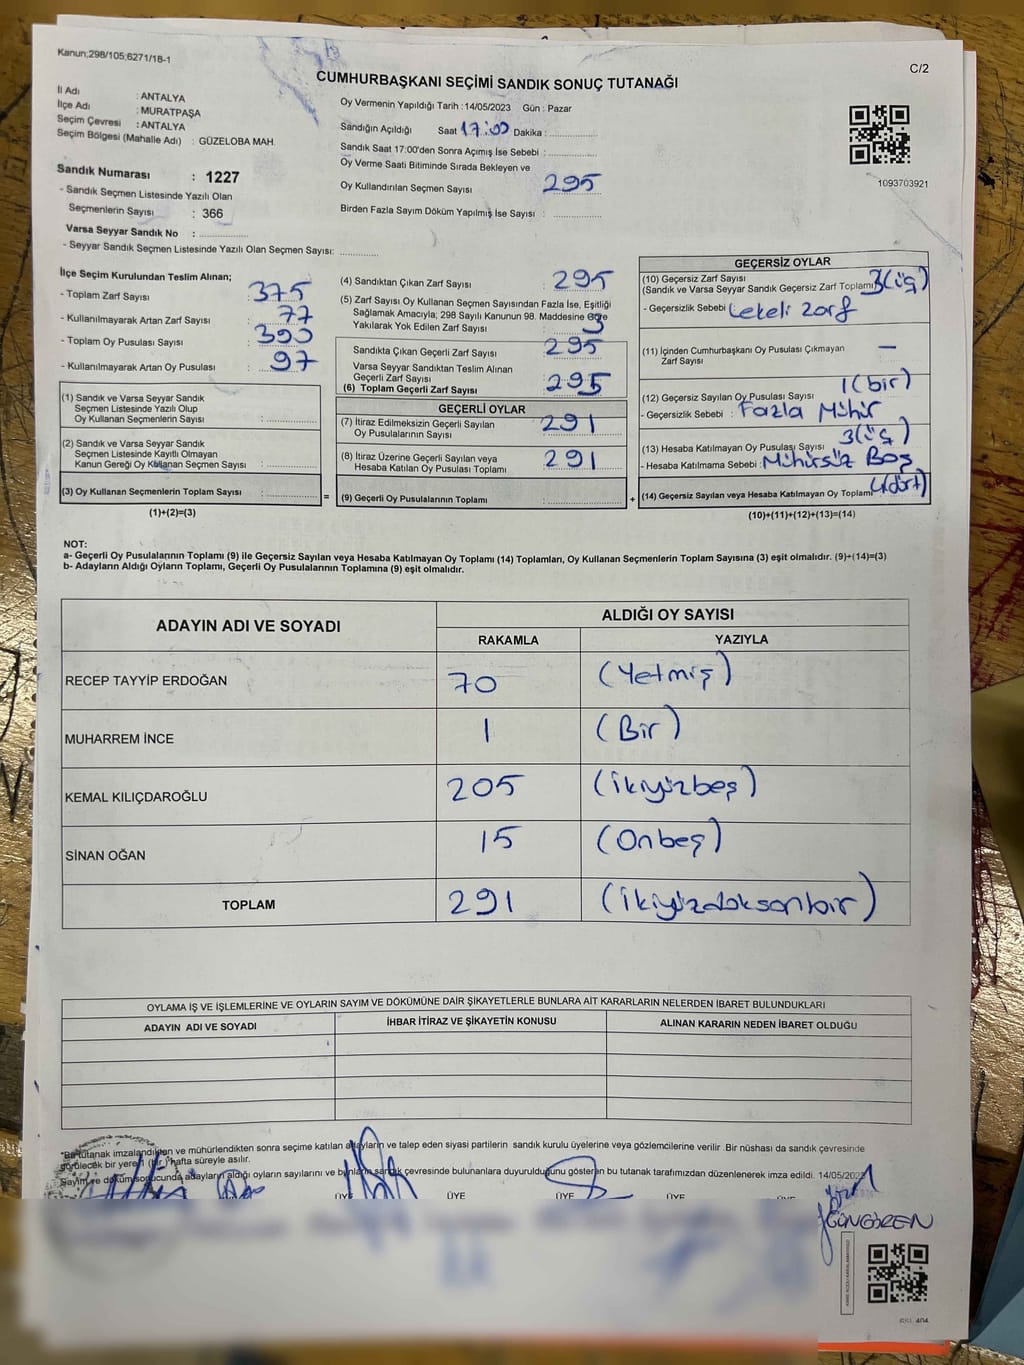 Kanun;298/105;6271/18-1
C/2
CUMHURBAŞKANI SEÇİMİ SANDIK SONUÇ TUTANAĞI
İl Adı : ANTALYA
İlçe Adı : MURATPAŞA
Seçim Çevresi : ANTALYA
Seçim Bölgesi (Mahalle Adı) : GÜZELOBA MAH.
Sandık Numarası : 1227
- Sandık Seçmen Listesinde Yazılı Olan
Seçmenlerin Sayısı : 366
Varsa Seyyar Sandık No :
- Seyyar Sandık Seçmen Listesinde Yazılı Olan Seçmen Sayısı:
Oy Vermenin Yapıldığı Tarih : 14/05/2023 Gün : Pazar
Sandığın Açıldığı Saat 17:00 Dakika :
Sandık Saat 17:00'den Sonra Açımış İse Sebebi :
Oy Verme Saati Bitiminde Sırada Bekleyen ve
Oy Kullandırılan Seçmen Sayısı 295
Birden Fazla Sayım Döküm Yapılmış İse Sayısı :
1093703921
İlçe Seçim Kurulundan Teslim Alınan;
- Toplam Zarf Sayısı : 375
- Kullanılmayarak Artan Zarf Sayısı : 77
- Toplam Oy Pusulası Sayısı : 390
- Kullanılmayarak Artan Oy Pusulası : 97
(1) Sandık ve Varsa Seyyar Sandık
Seçmen Listesinde Yazılı Olup
Oy Kullanan Seçmenlerin Sayısı :
(2) Sandık ve Varsa Seyyar Sandık
Seçmen Listesinde Kayıtlı Olmayan
Kanun Gereği Oy Kullanan Seçmen Sayısı :
(3) Oy Kullanan Seçmenlerin Toplam Sayısı : =
(1)+(2)=(3)
(4) Sandıktan Çıkan Zarf Sayısı : 295
(5) Zarf Sayısı Oy Kullanan Seçmen Sayısından Fazla İse, Eşitliği
Sağlamak Amacıyla; 298 Sayılı Kanunun 98. Maddesine Göre
Yakılarak Yok Edilen Zarf Sayısı : 3
Sandıkta Çıkan Geçerli Zarf Sayısı : 295
Varsa Seyyar Sandıktan Teslim Alınan
Geçerli Zarf Sayısı
(6) Toplam Geçerli Zarf Sayısı : 295
GEÇERLİ OYLAR
(7) İtiraz Edilmeksizin Geçerli Sayılan
Oy Pusulalarının Sayısı : 291
(8) İtiraz Üzerine Geçerli Sayılan veya
Hesaba Katılan Oy Pusulası Toplamı : 291
(9) Geçerli Oy Pusulalarının Toplamı : +
GEÇERSİZ OYLAR
(10) Geçersiz Zarf Sayısı
(Sandık ve Varsa Seyyar Sandık Geçersiz Zarf Toplamı) 3(üç)
- Geçersizlik Sebebi Lekeli zarf
(11) İçinden Cumhurbaşkanı Oy Pusulası Çıkmayan
Zarf Sayısı —
1(bir)
(12) Geçersiz Sayılan Oy Pusulası Sayısı
- Geçersizlik Sebebi : Fazla Mühür
3(üç)
(13) Hesaba Katılmayan Oy Pusulası Sayısı
- Hesaba Katılmama Sebebi : Mühürsüz Boş
(14) Geçersiz Sayılan veya Hesaba Katılmayan Oy Toplamı (dört)
(10)+(11)+(12)+(13)=(14)
NOT:
a- Geçerli Oy Pusulalarının Toplamı (9) ile Geçersiz Sayılan veya Hesaba Katılmayan Oy Toplamı (14) Toplamları, Oy Kullanan Seçmenlerin Toplam Sayısına (3) eşit olmalıdır. (9)+(14)=(3)
b- Adayların Aldığı Oyların Toplamı, Geçerli Oy Pusulalarının Toplamına (9) eşit olmalıdır.
ADAYIN ADI VE SOYADI
ALDIĞI OY SAYISI
RAKAMLA YAZIYLA
RECEP TAYYİP ERDOĞAN 70 (Yetmiş)
MUHARREM İNCE 1 (Bir)
KEMAL KILIÇDAROĞLU 205 (ikiyüzbeş)
SİNAN OĞAN 15 (Onbeş)
TOPLAM 291 (ikiyüzdoksanbir)
OYLAMA İŞ VE İŞLEMLERİNE VE OYLARIN SAYIM VE DÖKÜMÜNE DAİR ŞİKAYETLERLE BUNLARA AİT KARARLARIN NELERDEN İBARET BULUNDUKLARI
ADAYIN ADI VE SOYADI İHBAR İTİRAZ VE ŞİKAYETİN KONUSU ALINAN KARARIN NEDEN İBARET OLDUĞU
*Bu tutanak imzalandıkten ve mühürlendikten sonra seçime katılan adayların ve talep eden siyasi partilerin sandık kurulu üyelerine veya gözlemcilerine verilir. Bir nüshası da sandık çevresinde
görülecek bir yere (bir) hafta süreyle asılır.
Sayım ve döküm sonucunda adayların aldığı oyların sayılarını ve bunların sandık çevresinde bulunanlara duyurulduğunu gösteren bu tutanak tarafımızdan düzenlenerek imza edildi. 14/05/2023
ÜYE ÜYE ÜYE ÜYE ÜYE
GÜNGÖREN